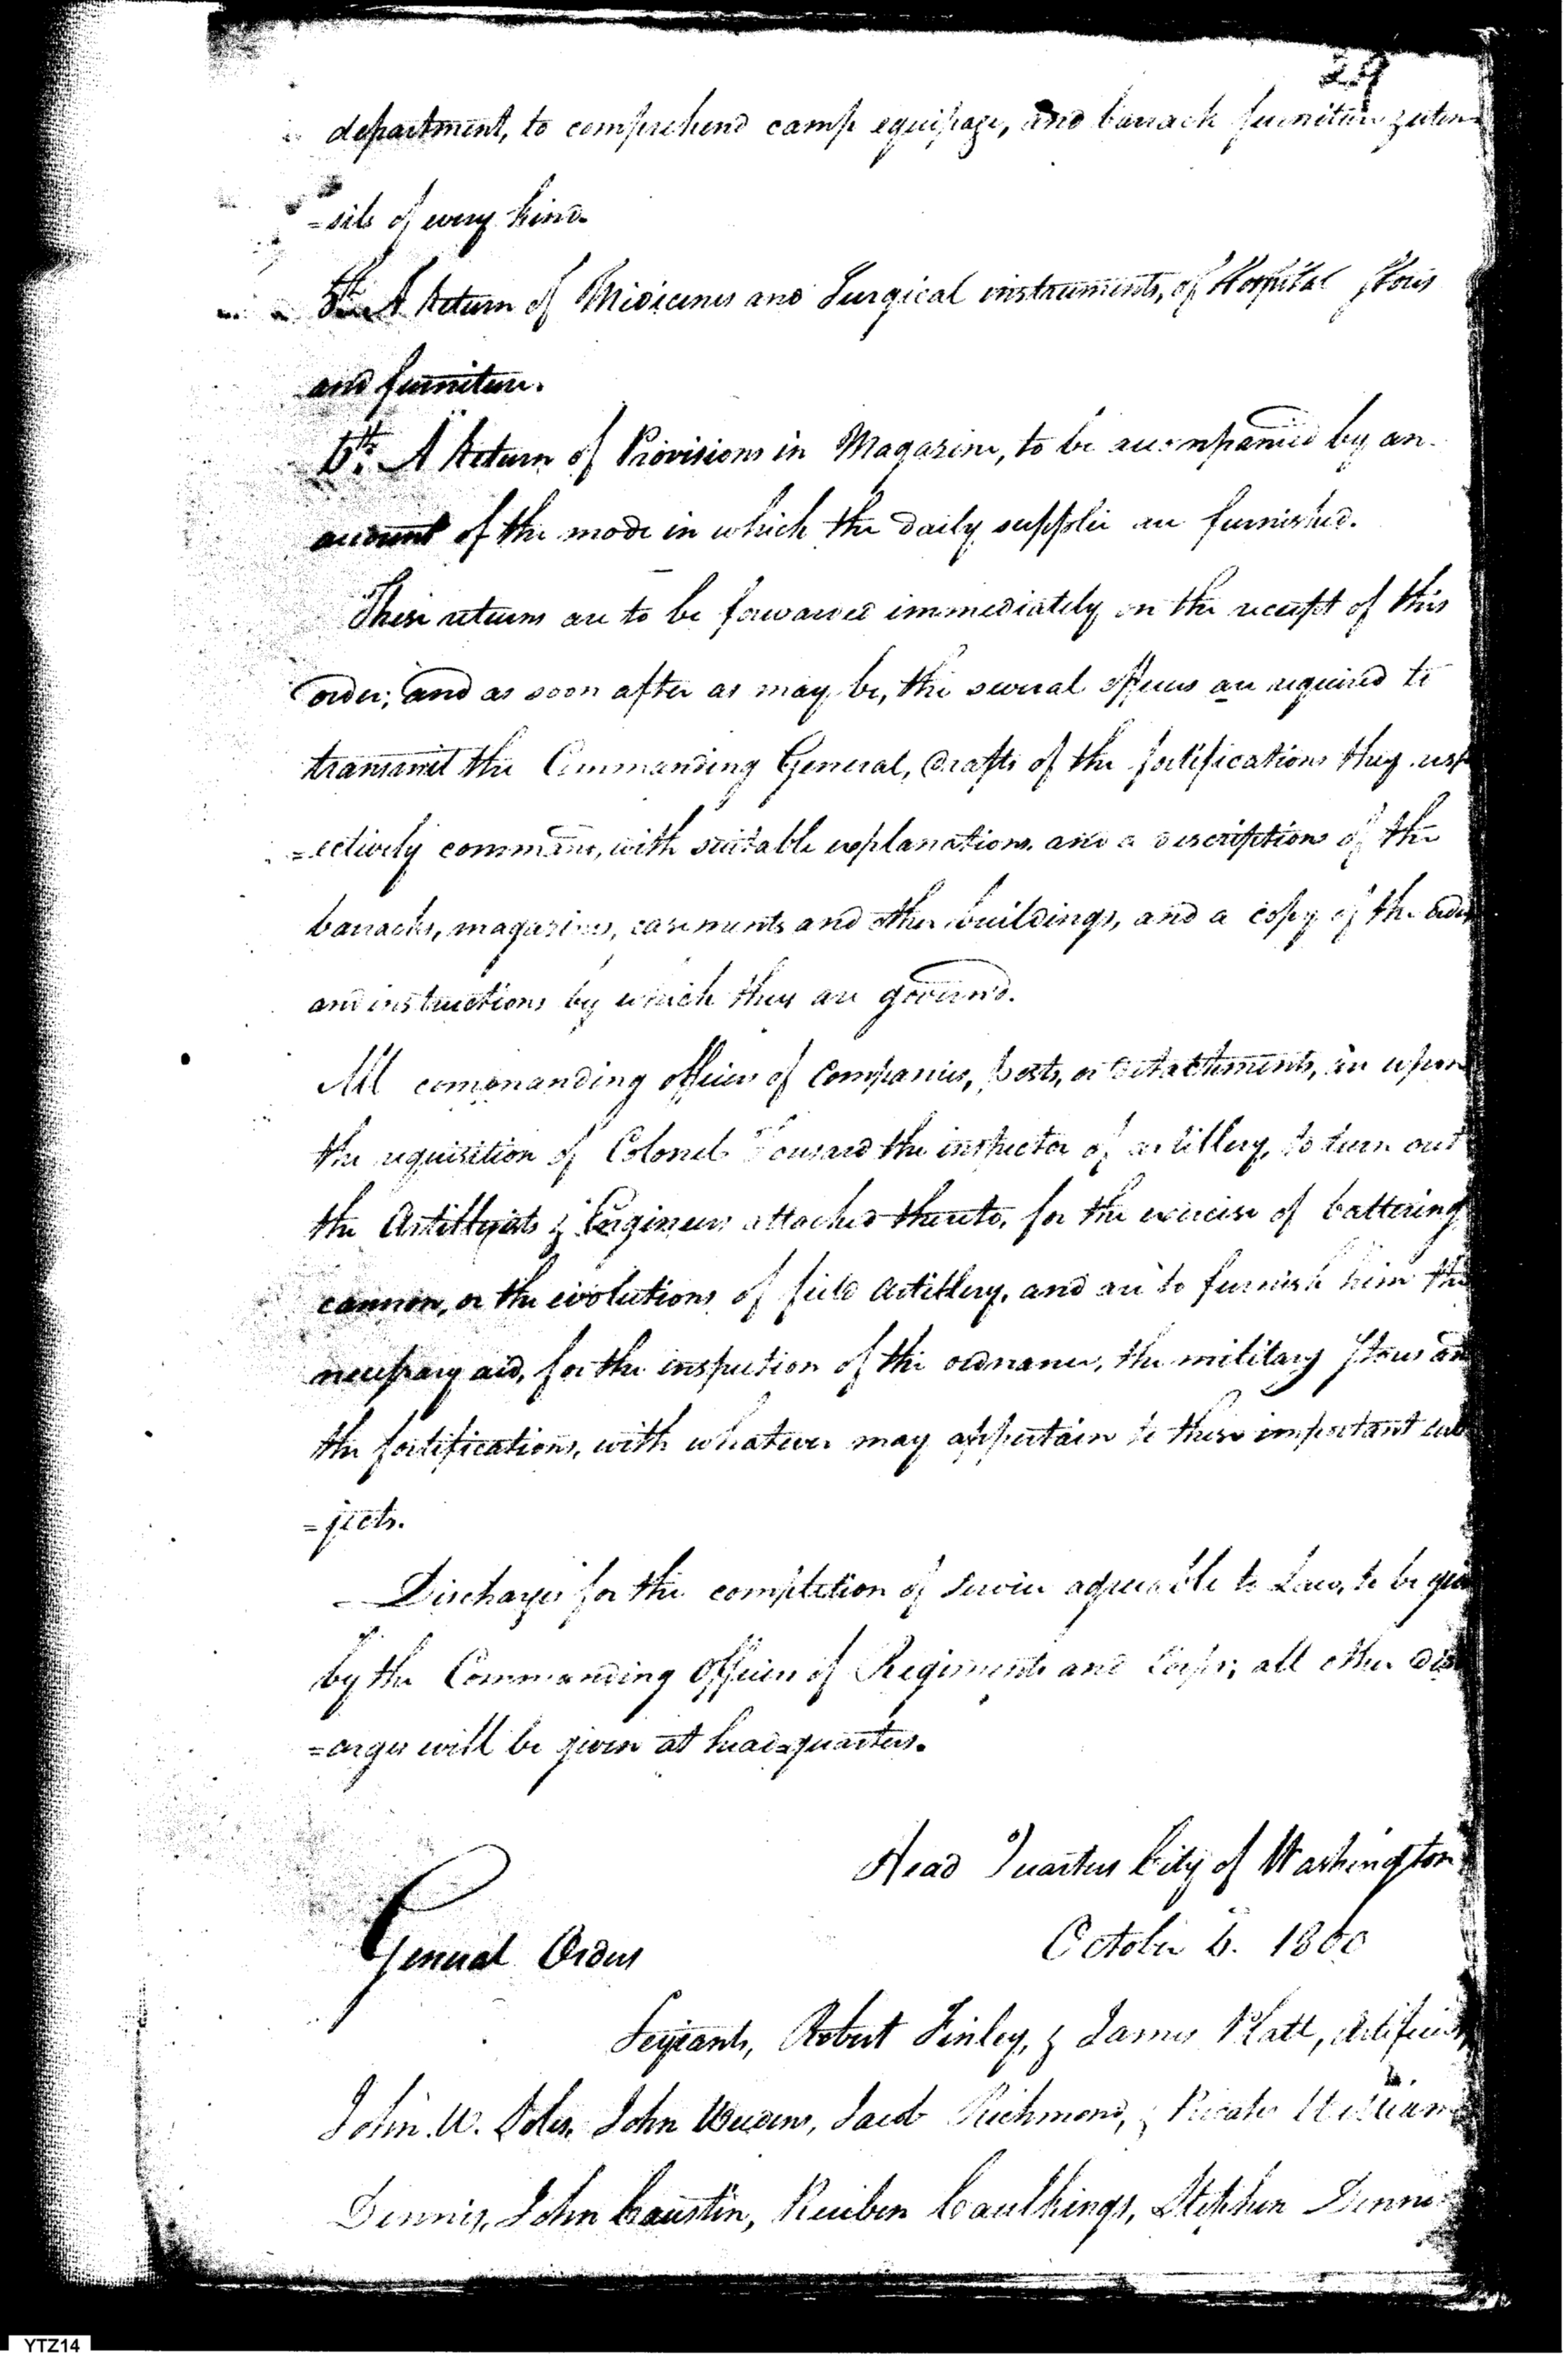 29
department, to comprehend camp equipage, and barrack furniture & uten-
=sils of every kind.
5th. A Return of Medicines and Surgical instruments, of Hospital stores
and furniture.
6th. A Return of Provisions in Magazine, to be accompanied by an
account of the mode in which the daily supplie are furnished.
These returns are to be forwarded immediately on the receipt of this
order; and as soon after as may be, the several officers are required to
transmit the Commanding General, drafts of the fortifications they resp
=ectively command, with suitable explanations and a description of the
barracks, magazines, casements and other buildings, and a copy of the orders
and instructions by which they are govern'd.
All commanding officers of Companies, posts, or detachments, are upon
the requisition of Colonel Tousard the inspector of artillery, to turn out
the Artillerists & Engineers attached thereto, for the exercise of battering
cannon, or the evolutions of field Artillery, and are to furnish him the
necessary aid, for the inspection of the ordnance, the military stores and
the fortifications, with whatever may appertain to these important sub
=jects.
Discharges for the completion of service agreeable to Law, to be given
by the Commanding Officers of Regiments and Corps; all other dis
=arges will be given at head=quarters.
Head Quarters City of Washington
October 6. 1800
General Orders
Serjeants, Robert Finley, & James Platt, Artificers,
John W. John Jacob Richmond, & Privates William
Dennis, John Caustin, Reuben Caulkings, Stephen Dennis
YTZ14